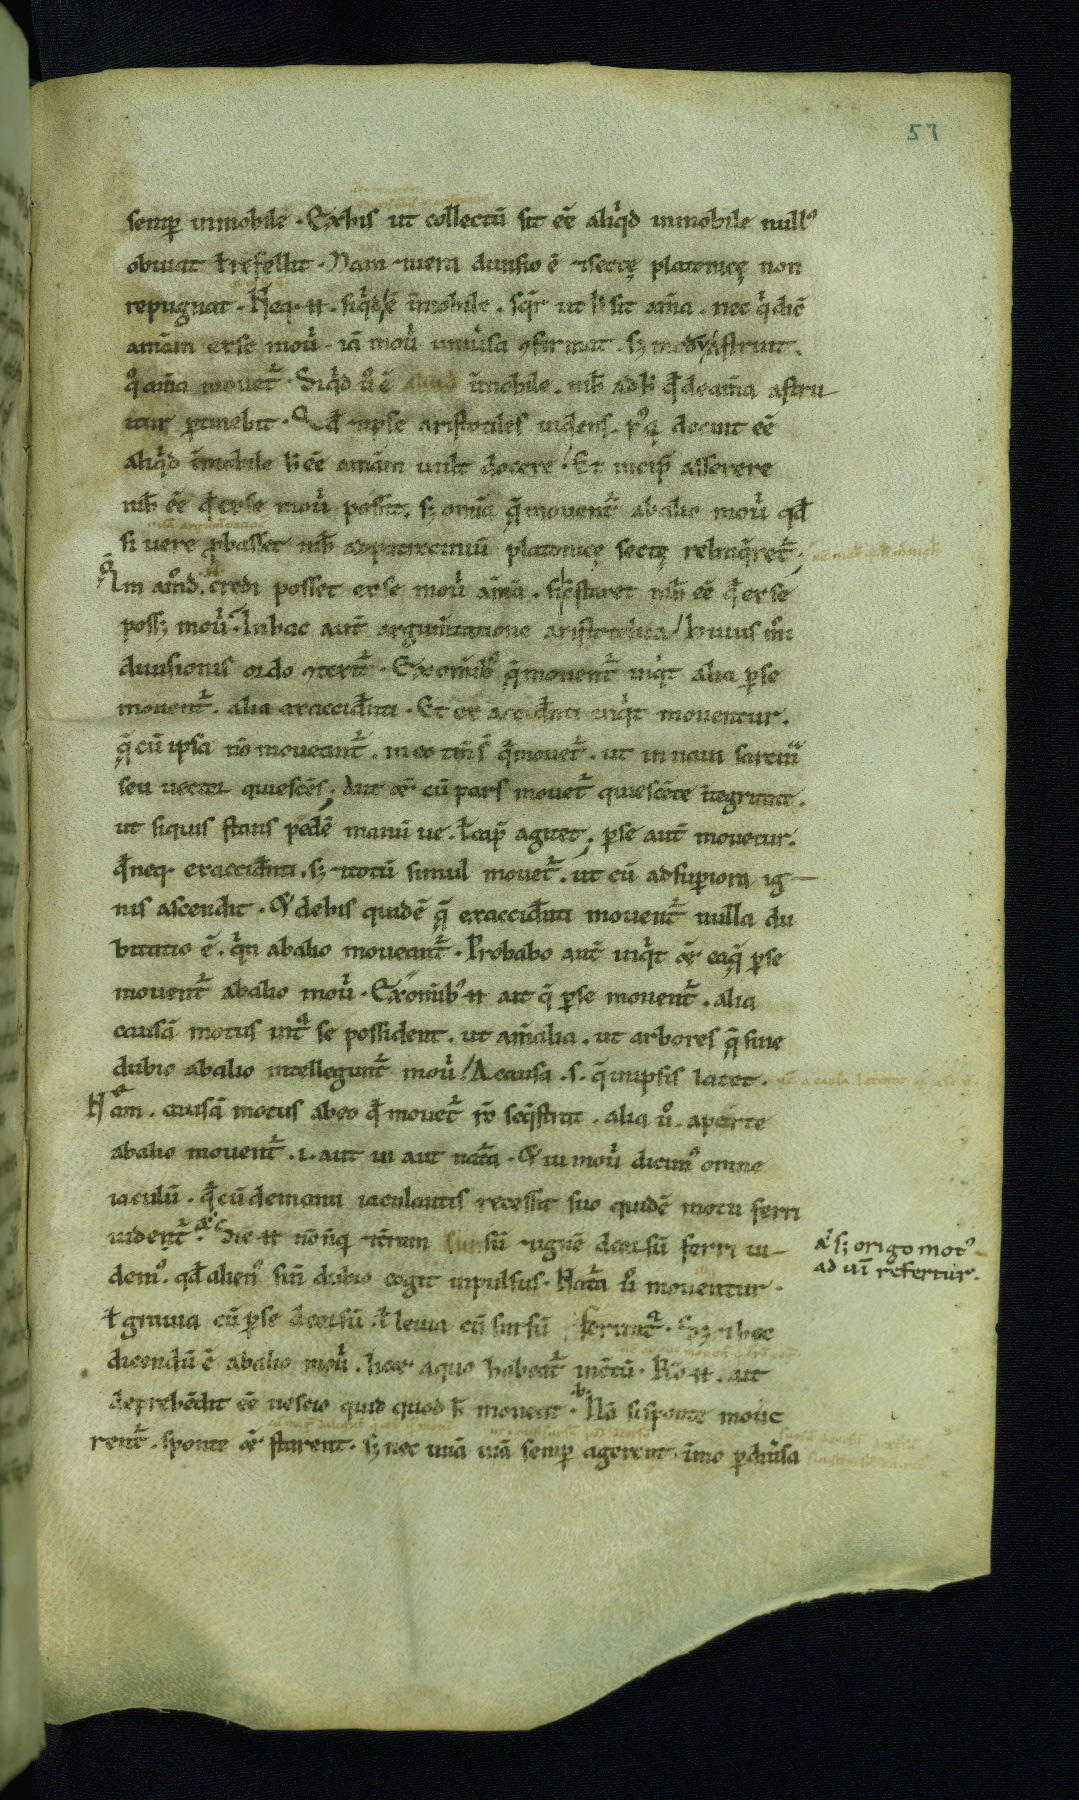 57
semp̄ inmobile · Exhis ut collectū sit eē aliq̇d inmobile null᷒
obuiat ł refellit · Nam ⁊ uera diuisio ē ⁊ sectę platonicę non
repugnat · Neq· n̄ · siq̇d ē īmobile · seq̄r ut h̄ sit am̄a · nec q̇ dic̄
am̄am ex se mou̇i · iā mou̇i uniūsa ꝯfirmat · sꝫ modū astruit ·
q̊ am̄a mouet᷑ · Siq̇d ū ē īmobile · nih̄ ad h̄ qd̄ de am̄a astru
itur ꝑtinebit · Qd̄ ⁊ ipse aristotiles uidens · p᷒q̄ docuit eē
aliq̇d īmobile h̄ eē am̄am uult docere · Et incip̄ asserere
nih̄ eē qd̄ ex se mou̇i possit · sꝫ om̄ia q̄ mouent᷑ abalio mou̇i qd̄
si uere ꝓbasset nih̄ ad patrociniū platonicę sectę relinq̄ret᷑ ;
credi posset ex se mou̇i am̄ā · si ꝯstaret nih̄ eē qd̄ ex se
possꝫ mou̇i · In hac aut̄ argum̄tatione aristotelica / huius m̊i
diuisionis ordo ꝯtexit᷑ · Ex om̄ib᷒ q̄ mouent᷑ inq̇t alia ꝑ se
mouent᷑ · alia ex accid̄nti · Et ex accid̄nti inq̇t mouentur ·
q̄ cū ipsa nō moueant᷑ · in eo tn̄ s̄ qd̄ mouet᷑ · ut in naui sarcin̄
seu uector quiescēs ; Aut &̄ cū pars mouet᷑ quiescēte ītegritate ·
ut siquis stans pedē manū ue · ł cap̄ agitet ; ꝑ se aut̄ mouetur ·
qd̄ neq· ex accid̄nti · sꝫ ⁊ totū simul mouet᷑ · ut cū ad supiora ig
nis ascendit · & de his quidē q̄ ex accid̄nti mouent᷑ nulla du
bitatio ē · q̇n abalio moueant᷑ · Probabo aut̄ inq̇t &̄ ea q̄ ꝑ se
mouent᷑ abalio mou̇i · Ex om̄ib᷒ n̄ ait q̄ ꝑ se mouent᷑ · alia
causā motus int᷑ se possident · ut am̄alia · ut arbores q̄ sine
dubio abalio intellegunt᷑ mou̇i / A causa · s · q̄ in ipsis latet ·
Nam · causā motus ab eo qd̄ mouet᷑ rō seq̄strat · alia ū · aperte
abalio mouent᷑ · i · aut ui aut nat᷑a · & ui mou̇i dicim᷒ omne
iaculū · qd̄ cū de manu iaculantis recessit suo quidē motu ferri
uident᷑ · Sic n̄ nōnūq̄ ⁊ t᷑ram sursū ⁊ ignē deorsū ferri ui
dem᷒ · qd̄ alien᷒ sin̄ dubio cogit inpulsus · Nat᷑a ū mouentur ·
ł grauia cū ꝑ se deorsū · ł leuia cū sursū ferunt᷑ · Sꝫ ⁊ hec
dicendū ē abalio mou̇i · licꝫ a quo habeat᷑ incertū · Rō n̄ · ait
deprehēdit eē nescio quid quod h̄ moueat · Nā si sponte moue
rent᷑ · sponte &̄ starent · sꝫ nec unā uiā semp̄ agerent · īmo ꝑ diūsa
sꝫ origo mot᷒
ad uī refertur ·